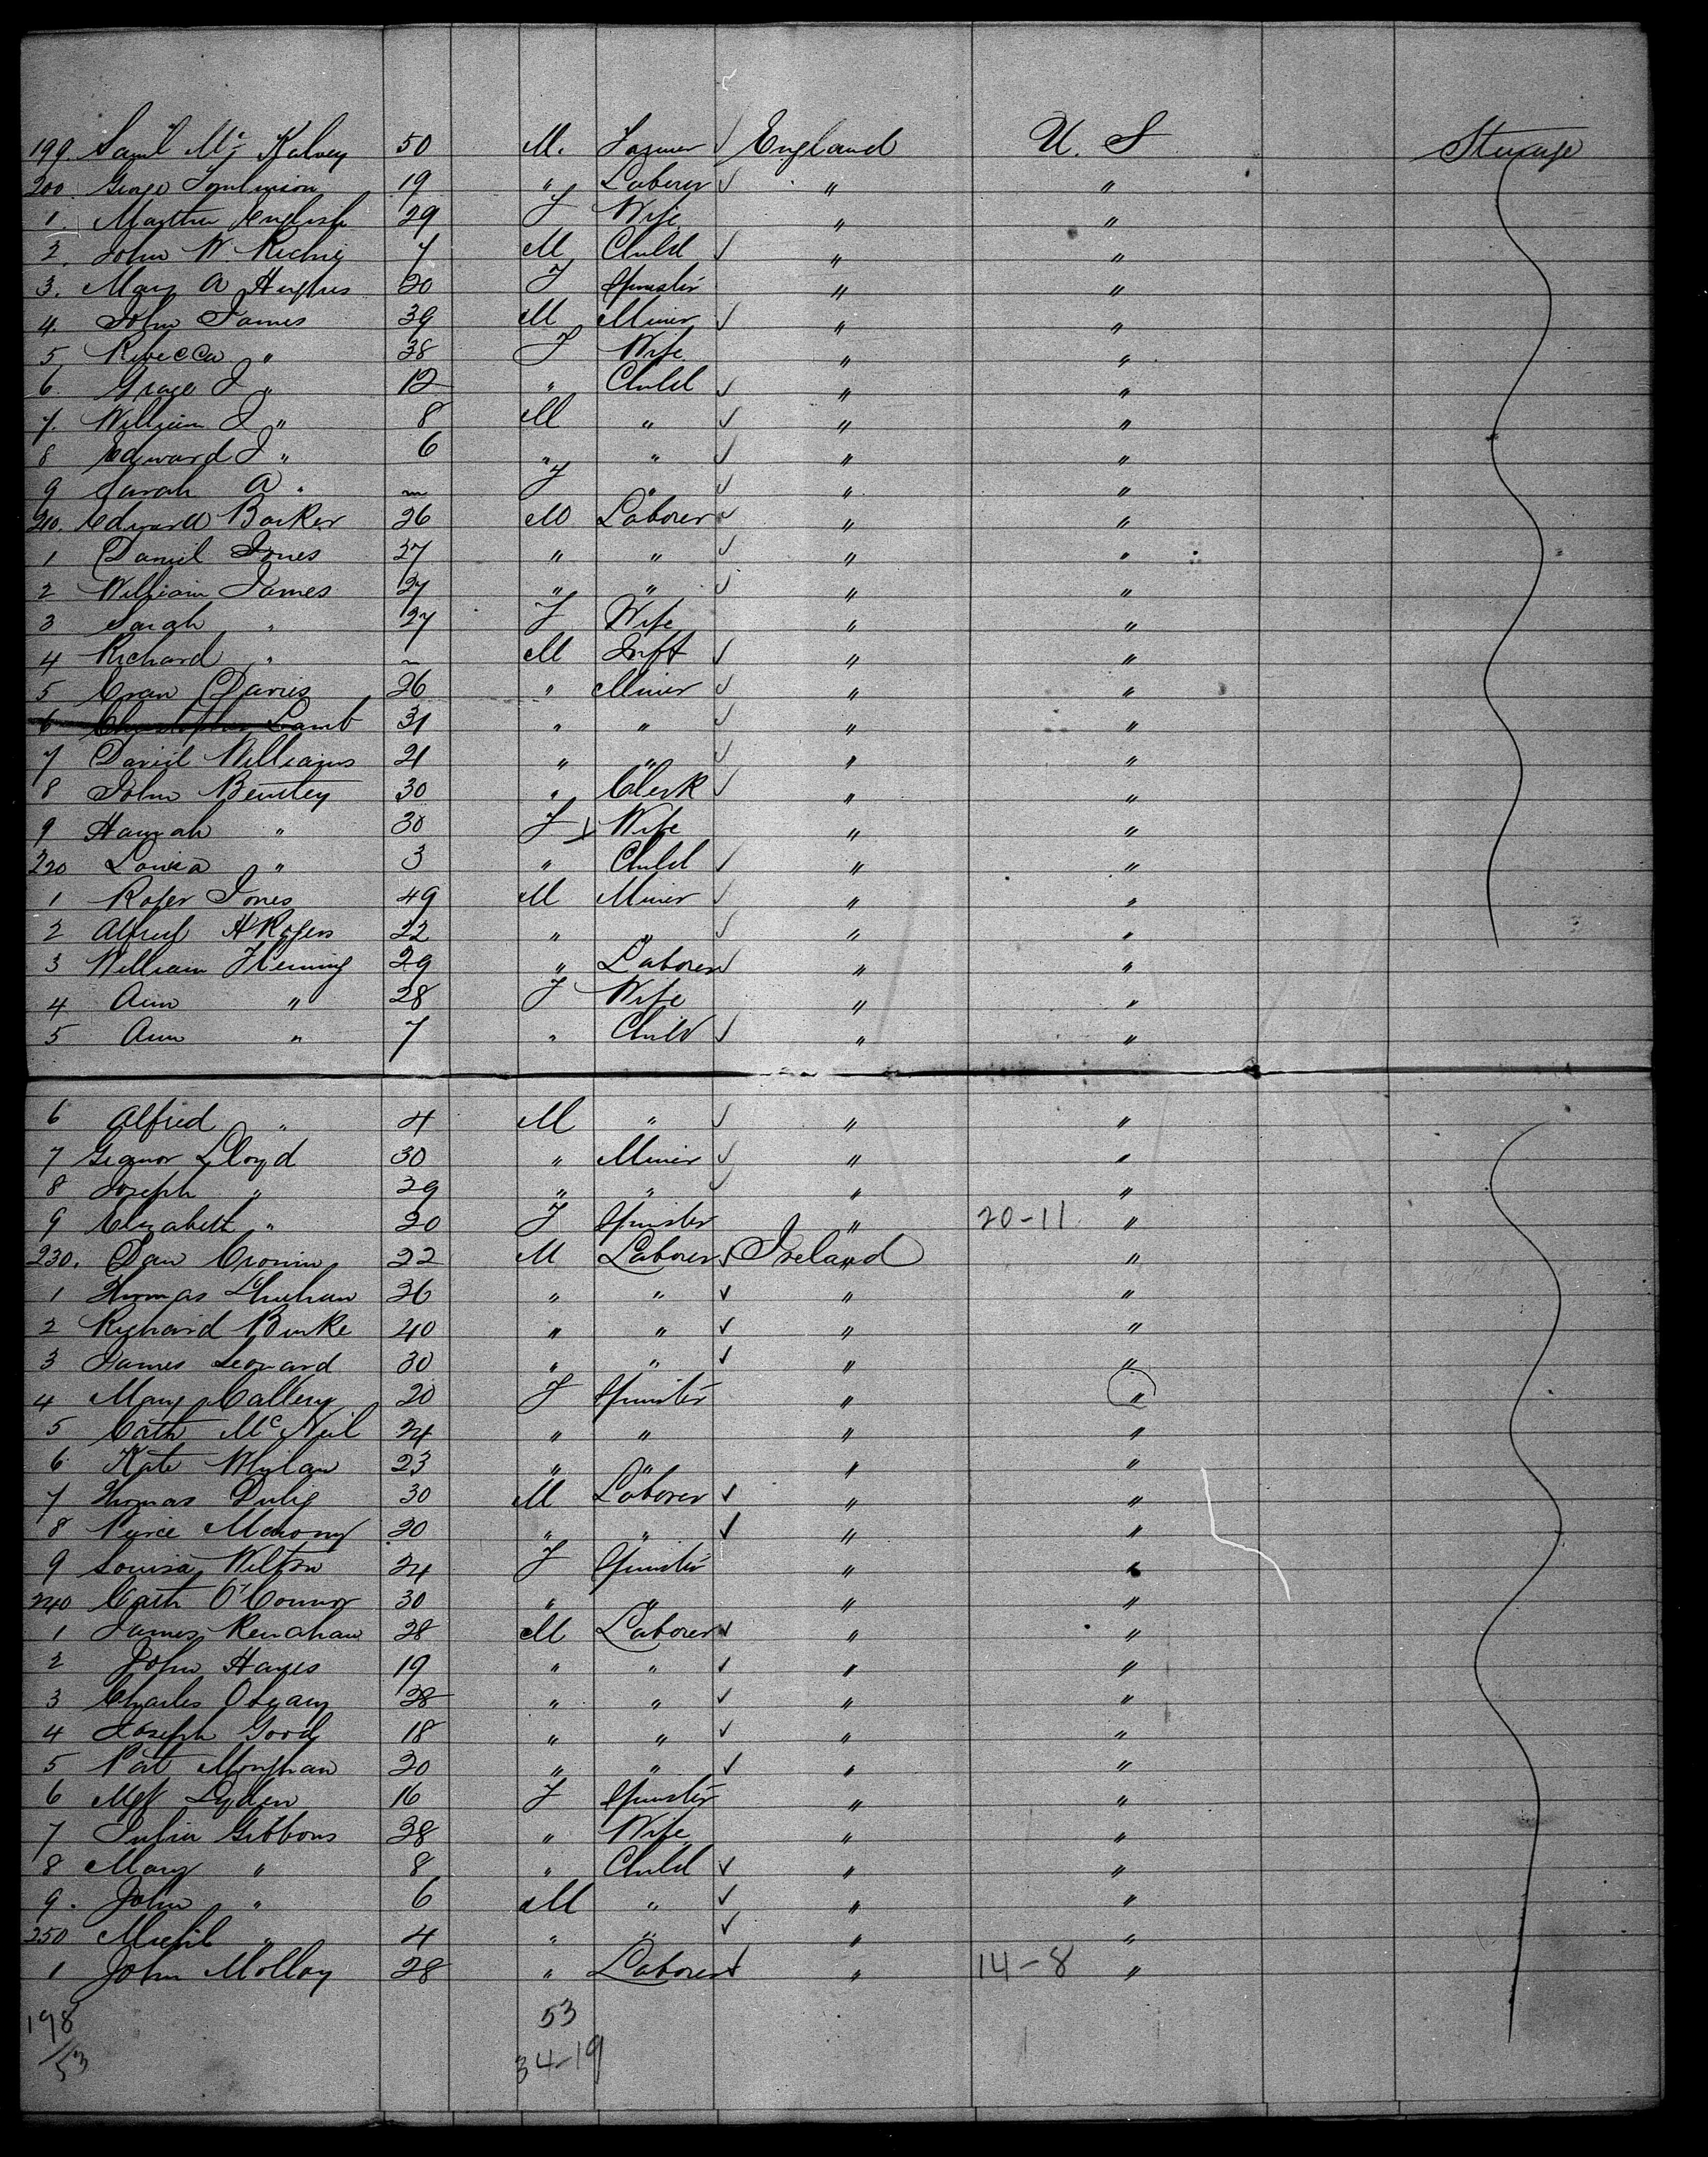 199. Saml Mc Kalvey 50 M. Farmer ✓ England U. S Steerage
200 George Tomlinson 19 " Laborer ✓ " "
1. Martha English 29 F Wife " "
2. John W. Richig 7 M Child ✓ " "
3. Mary A Hughes 20 F Spinster " "
4. John James 39 M Miner ✓ " "
5 Rebecca " 38 F Wife " "
6. Grace J " 12 " Child ✓ " "
7. William J " 8 M " ✓ " "
8 Edward J " 6 " " ✓ " "
9 Sarah A " F " ✓ " "
210. Edward Barker 26 M Laborer ✓ " "
1 Daniel Jones 27 " " ✓ " "
2 William James 27 " " ✓ " "
3 Sarah " 27 F Wife " "
4 Richard " M Inft ✓ " "
5 Evan Davies 26 " Miner ✓ " "
6 Christopher Lamb 31 " " ✓ " "
7 David Williams 21 " " ✓ " "
8 John Bentley 30 " Clerk ✓ " "
9 Hannah " 30 F Wife " "
220 Louisa " 3 " Child ✓ " "
1 Roger Jones 49 M Miner ✓ " "
2 Alfred H Rogers 22 " " ✓ " "
3 William Fleming 29 " Laborer ✓ " "
4 Ann " 28 F Wife " "
5 Ann " 7 " Child ✓ " "
6 Alfred " 4 M " ✓ " "
7 Lloyd 30 " Miner ✓ " "
8 Joseph " 29 " " ✓ " "
9 Elizabeth " 20 F Spinster " 20-11 "
230. Dan Cronin 22 M Laborer ✓ Ireland "
1 Thomas 26 " " ✓ " "
2 Richard Burke 40 " " ✓ " "
3 James Leonard 30 " " ✓ " "
4 Mary Callery 20 F Spinster " "
5 Cath McNeil 24 " " " "
6 Kate Whelan 23 " " " "
7 Thomas Dulig 30 M Laborer ✓ " "
8 Peirce Mahony 20 " " ✓ " "
9 Louisa Wilson 24 F Spinster " "
240 Cath O'Connor 30 " " " "
1 James Renahan 28 M Laborer ✓ " "
2 John Hayes 19 " " ✓ " "
3 Charles OLeary 28 " " ✓ " "
4 Joseph Good 18 " " ✓ " "
5 Pat Monghan 20 " " ✓ " "
6 Mgt Lyden 16 F Spinster " "
7 Julia Gibbons 38 " Wife " "
8 Mary " 8 " Child ✓ " "
9. John " 6 M " ✓ " "
250 Michl " 4 " " ✓ " "
1 John Molloy 28 " Laborer ✓ " 14-8 "
198 53
/53 34-19